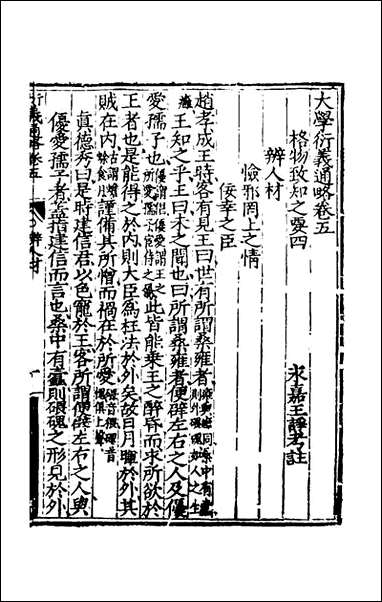 大學衍義通略卷五
格物致知之要四
永嘉王諍考註
辨人材
憸邪罔上之情
佞幸之臣
趙孝成王時客有見王曰世有所謂桑雍者雍與癰同桑中有蠹則外碨磈如人之生
癰王知之乎王曰未之聞也曰所謂桑雍者便辟左右之人及優
愛孺子也此皆能乘王之醉昏而求所欲於
王者也是能得之於內則大臣為枉法於外矣故日月暉於外其
賊在內謹備其所憎而禍在於所愛
真德秀曰是時建信君以色寵於王客所謂便辟左右之人與
優愛孺子者蓋指建信而言也桑中有蠹則碨磈之形見於外
辨人材